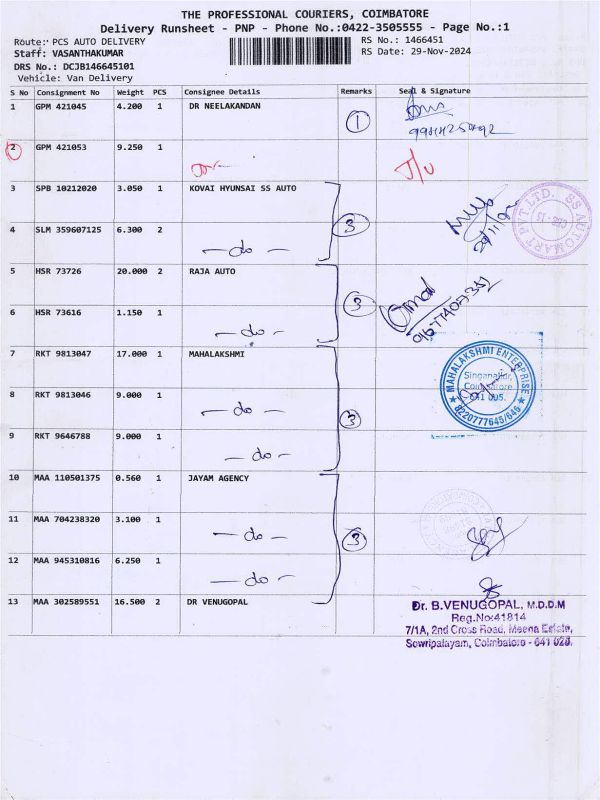 THE PROFESSIONAL COURIERS, COIMBATORE
Delivery Runsheet - PNP - Phone No.:0422-3505555 - Page No.:1
Route: PCS AUTO DELIVERY
RS No.: 1466451
Staff: VASANTHAKUMAR
RS Date: 29-Nov-2024
DRS No.: DCJB146645101
Vehicle: Van Delivery
S No Consignment No Weight PCS Consignee Details Remarks Seal & Signature
1 GPM 421045 4.200 1 DR NEELAKANDAN 1
2 GPM 421053 9.250 1
3 SPB 10212020 3.050 1 KOVAI HYUNSAI SS AUTO 3
4 SLM 359607125 6.300 2
- do -
SS AUTOMART PVT LTD.
5 HSR 73726 20.000 2 RAJA AUTO 3
6 HSR 73616 1.150 1
- do -
7 RKT 9813047 17.000 1 MAHALAKSHMI
8 RKT 9813046 9.000 1
- do - 3
9 RKT 9646788 9.000 1
- do -
MAHALAKSHMI ENTERPRISE
Singanallur,
Coimbatore
641 005.
8220777645/646
10 MAA 110501375 0.560 1 JAYAM AGENCY
11 MAA 704238320 3.100 1
- do - 3
12 MAA 945310816 6.250 1
- do -
13 MAA 302589551 16.500 2 DR VENUGOPAL
Dr. B.VENUGOPAL, M.D.D.M
Reg.No:41814
7/1A, 2nd Cross Road, Meena Estate,
Sowripalayam, Coimbatore - 641 028.